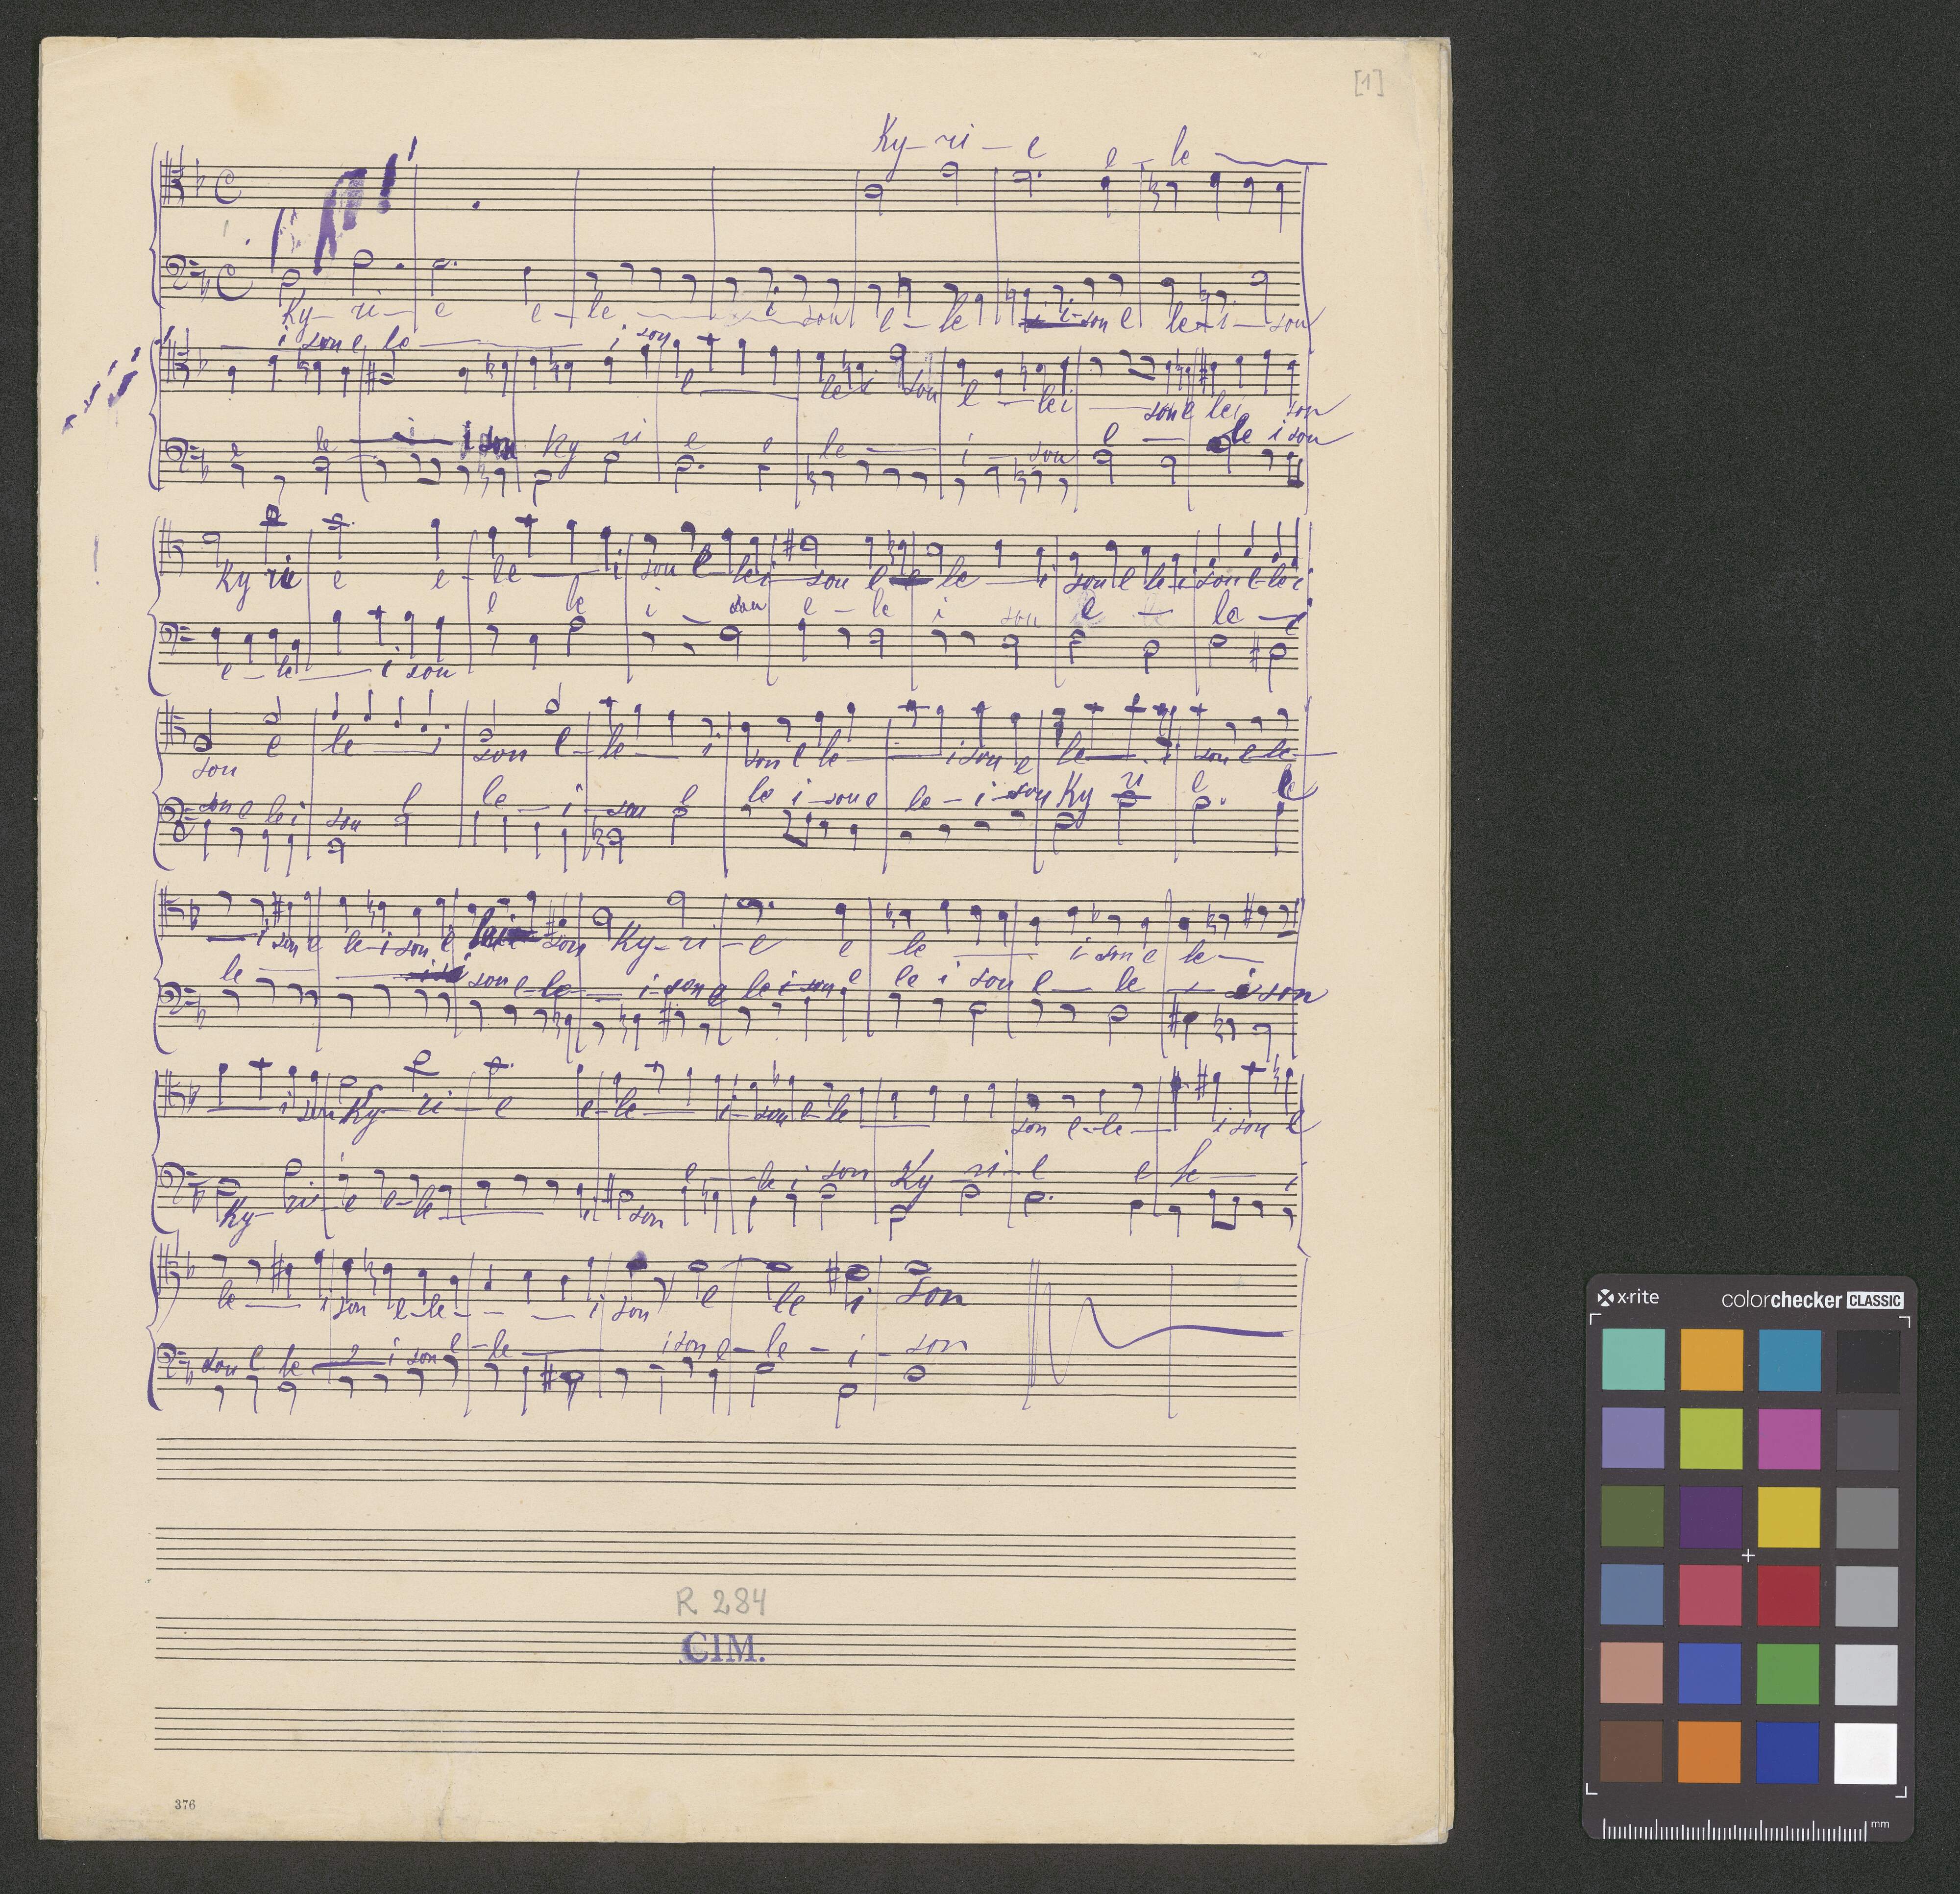 [1]
Ky - ri - e e - le
Ky - ri - e e - le i son e - le i - son e le - i - son
i son e le i son e le i son e - lei son e lei son
le i i son Ky ri e e le i - son e - le i son
Ky rie e e - le i son e lei son e le i son e le i son e - le i
e - le i son e le i - son e - le i son e - le - i
son e le i son e - le i son e le i son e le i son e - le
son e lei son e le - i - son e le i - son e le - i - son Ky ri e e
i son e le - i son e son Ky - ri - e e le i son e le
le son e - le i - son e le i son e le i son e le i son
i son Ky - ri - e e - le i - son e - le son e - le i son e
Ky - ri - e e - le i son e - le i son Ky ri - e e le i
le i son e - le - i son e le i son
son e le i son e - le i son e - le - i - son
R 284
CIM.
376
x-rite colorchecker CLASSIC
mm